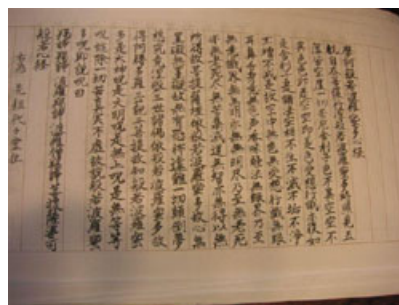 摩訶般若波羅蜜多心経
観自在菩薩行深般若波羅蜜多時照見五
蘊皆空度一切苦厄舎利子色不異空空不
異色色即是空空即是色受想行識亦復如
是舎利子是諸法空相不生不滅不垢不浄
不増不減是故空中無色無受想行識無眼
耳鼻舌身意無色声香味触法無眼界乃至
無意識界無無明亦無無明尽乃至無老死
亦無老死尽無苦集滅道無智亦無得以無
所得故菩提薩埵依般若波羅蜜多故心無
罣礙無罣礙故無有恐怖遠離一切顛倒夢
想究竟涅槃三世諸佛依般若波羅蜜多故
得阿耨多羅三藐三菩提故知般若波羅蜜
多是大神呪是大明呪是無上呪是無等等
呪能除一切苦真実不虚故説般若波羅蜜
多呪即説呪曰
羯諦羯諦 波羅羯諦 波羅僧羯諦 菩提薩婆訶
般若心経
為 先祖代々